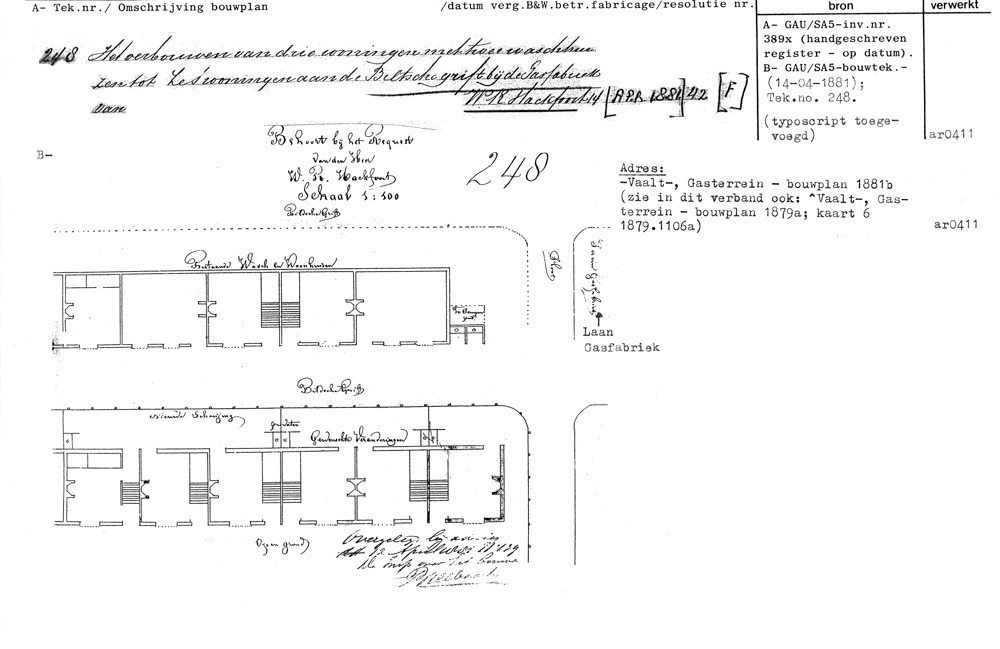 A- Tek.nr./ Omschrijving bouwplan
/datum verg.B&W.betr.fabricage/resolutie nr.
bron
verwerkt
248 Het verbouwen van drie woningen met twee waschhui
zen tot zes woningen aan de Biltsche grift bij de Gasfabriek
van W. R. Hackfoort 14 [APR 1881] 42 [F]
A- GAU/SA5-inv.nr.
389x (handgeschreven
register - op datum).
B- GAU/SA5-bouwtek.-
(14-04-1881);
Tek.no. 248.
(typoscript toege-
voegd)
ar0411
B-
Behoort bij het Request
van den Heer
W. R. Hackfoort
Schaal 1:100
Biltsche Grift
248
Adres:
-Vaalt-, Gasterrein - bouwplan 1881b
(zie in dit verband ook: ^Vaalt-, Gas-
terrein - bouwplan 1879a; kaart 6
1879.1106a)
ar0411
Bestaande Wasch en Woonhuizen
Sloot
Laan
Gasfabriek
Biltsche Grift
nieuwe Schoeijing
Gewenschte Veranderingen
Open grond
Overgelegd bij advies